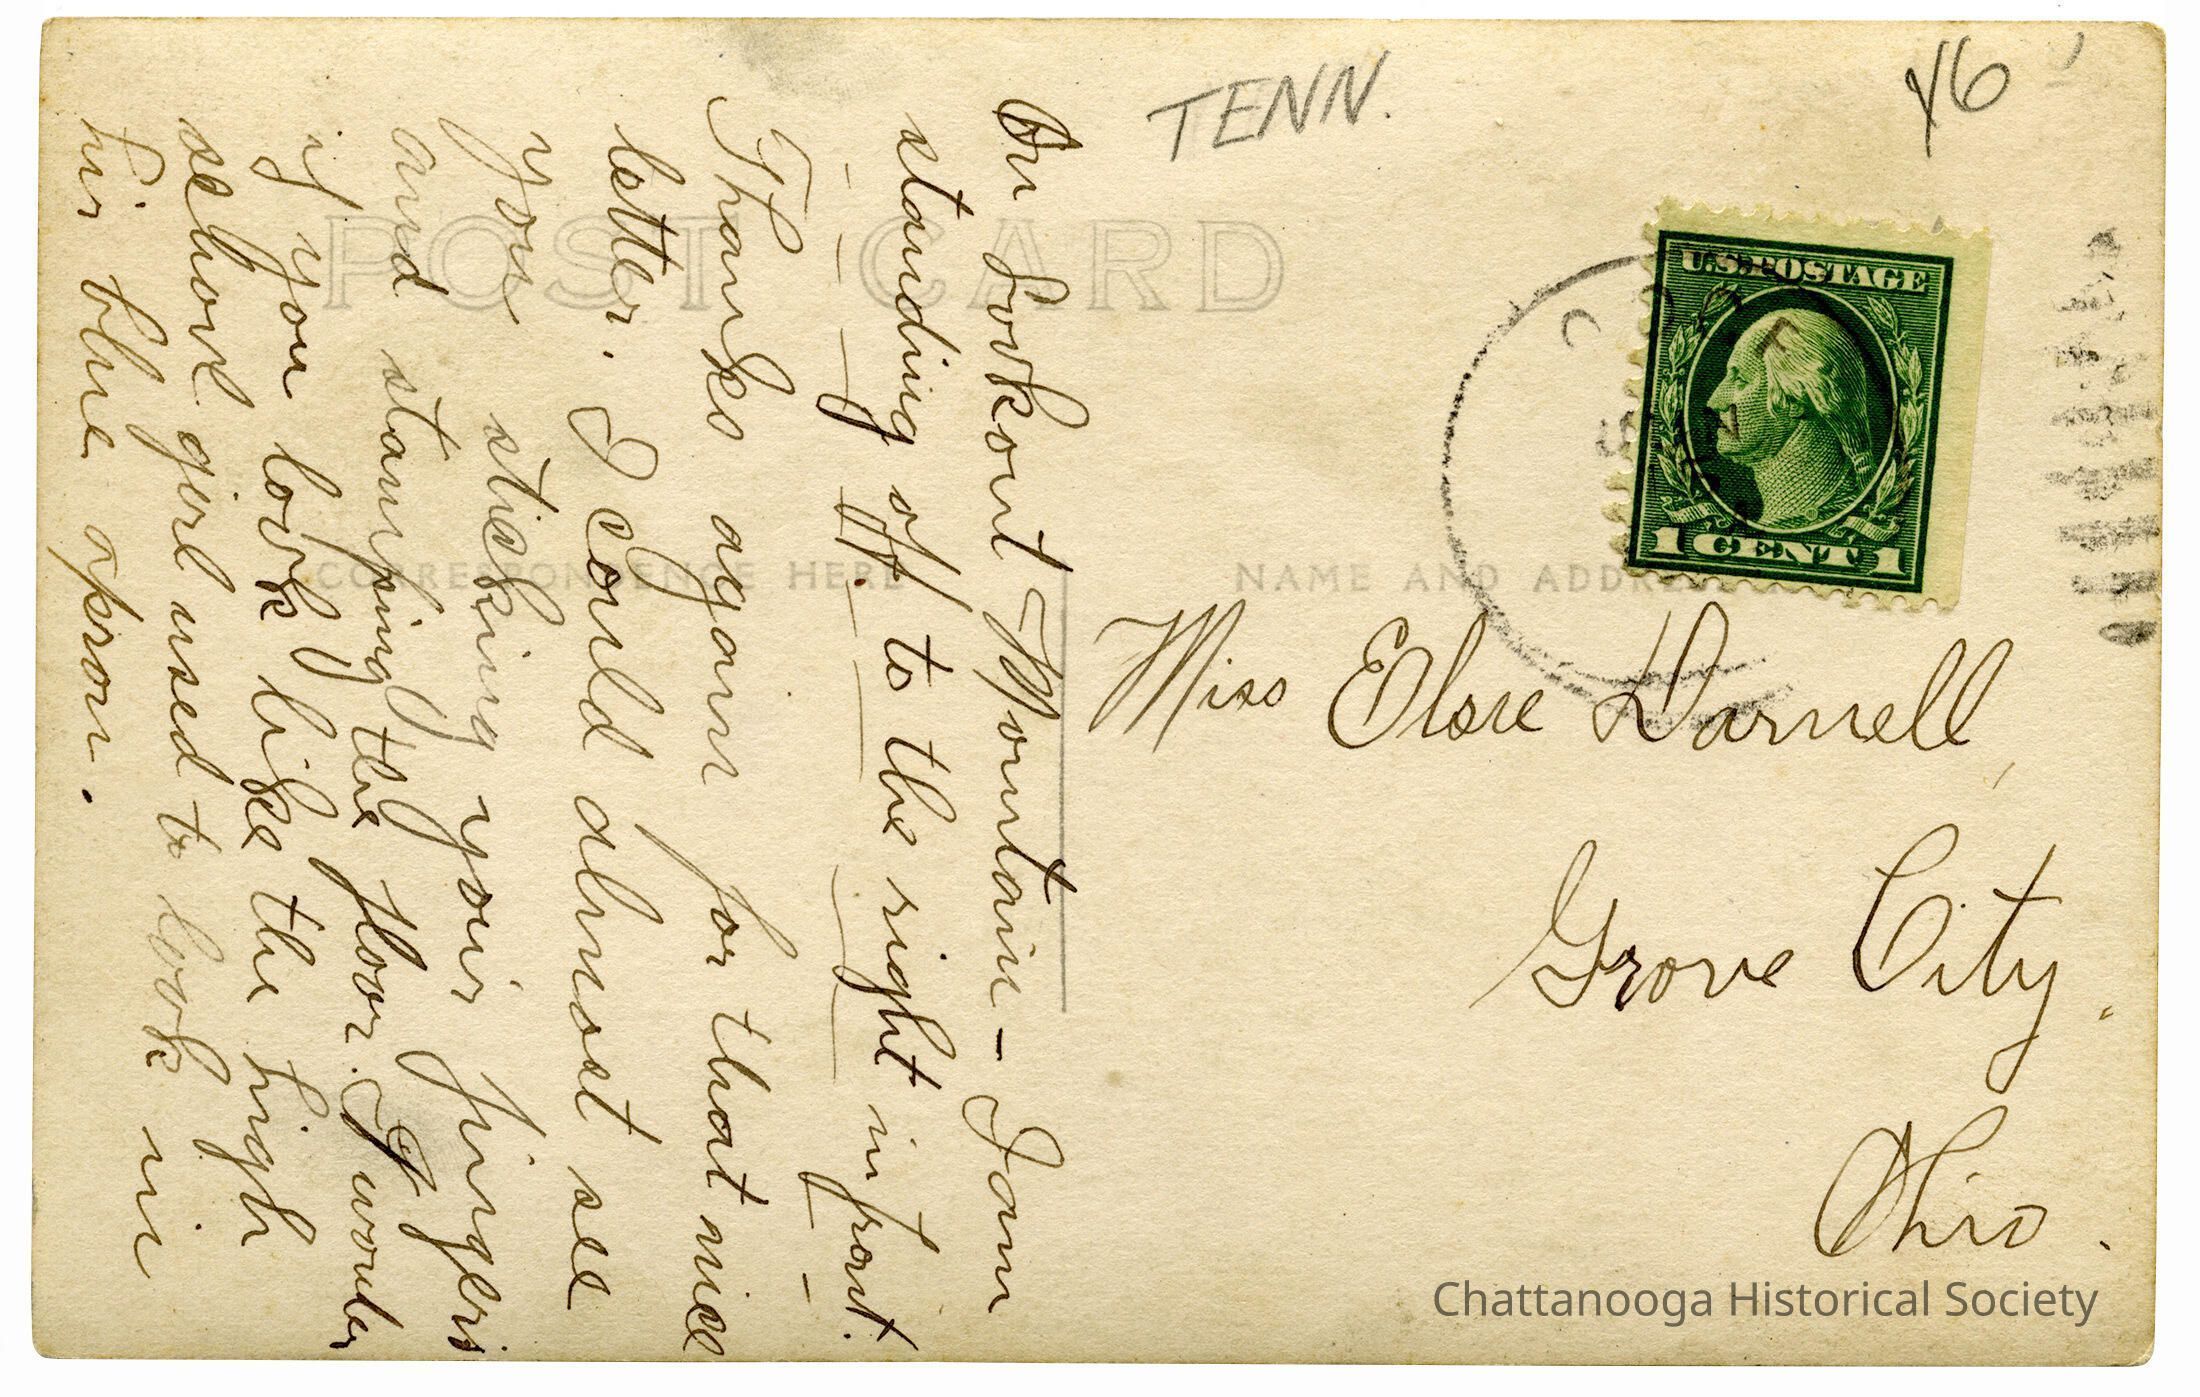 TENN.
46
POST CARD
U.S. POSTAGE
1 CENT 1
CORRESPONDENCE HERE
NAME AND ADDRESS
On Lookout Mountain – I am
standing off to the right in front.
Thanks again for that nice
letter. I could almost see
you sticking your fingers
and stamping the floor. I wonder
if you look like the high
school girl used to look in
her blue apron.
Miss Elsie Darnell,
Grove City,
Ohio.
Chattanooga Historical Society